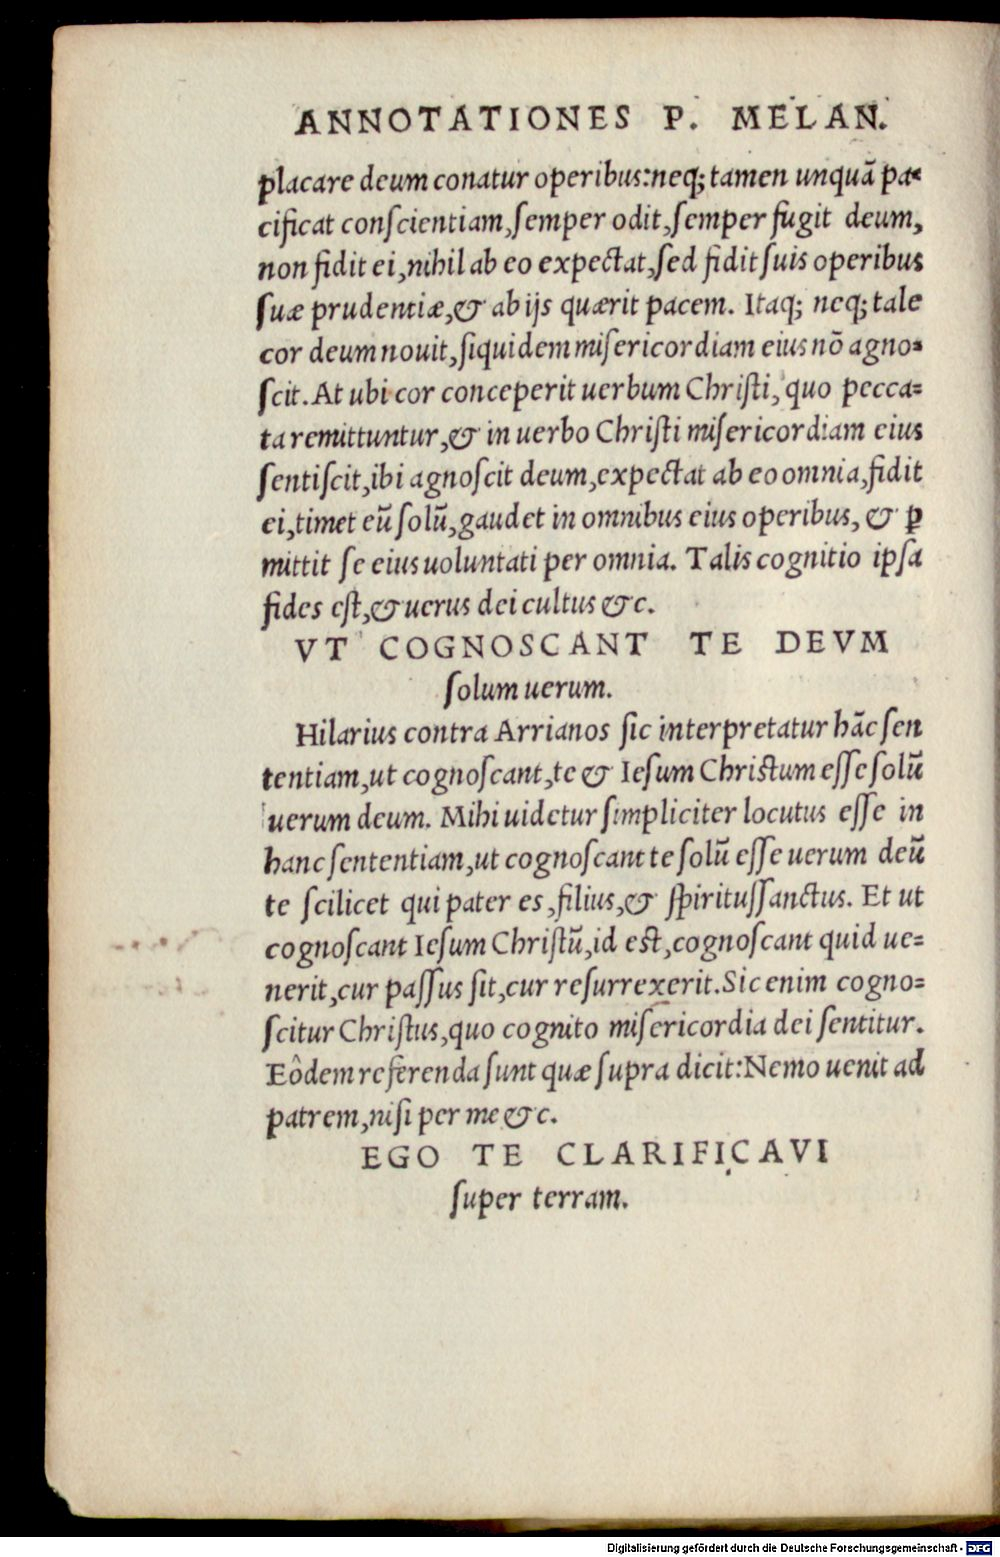 ANNOTATIONES P. MELAN.
placare deum conatur operibus:neq; tamen unquā pa=
cificat conſcientiam,ſemper odit,ſemper fugit deum,
non fidit ei,nihil ab eo expectat,ſed fidit ſuis operibus
ſuæ prudentiæ,& ab ijs quærit pacem. Itaq; neq; tale
cor deum nouit,ſiquidem miſericordiam eius nō agno=
ſcit. At ubi cor conceperit uerbum Chriſti, quo pecca=
ta remittuntur,& in uerbo Chriſti miſericordiam eius
ſentiſcit,ibi agnoſcit deum,expectat ab eo omnia,fidit
ei,timet eū ſolū,gaudet in omnibus eius operibus, & ꝑ
mittit ſe eius uoluntati per omnia. Talis cognitio ipſa
fides eſt,& uerus dei cultus &c.
VT COGNOSCANT TE DEVM
ſolum uerum.
Hilarius contra Arrianos ſic interpretatur hāc ſen
tentiam,ut cognoſcant,te & Ieſum Chriſtum eſſe ſolū
uerum deum. Mihi uidetur ſimpliciter locutus eſſe in
hanc ſententiam,ut cognoſcant te ſolū eſſe uerum deū
te ſcilicet qui pater es,filius,& ſpirituſſanctus. Et ut
cognoſcant Ieſum Chriſtū,id eſt,cognoſcant quid ue=
nerit,cur paſſus ſit,cur reſurrexerit. Sic enim cogno=
ſcitur Chriſtus,quo cognito miſericordia dei ſentitur.
Eôdem referenda ſunt quæ ſupra dicit:Nemo uenit ad
patrem,niſi per me &c.
EGO TE CLARIFICAVI
ſuper terram.
Digitalisierung gefördert durch die Deutsche Forschungsgemeinschaft - DFG